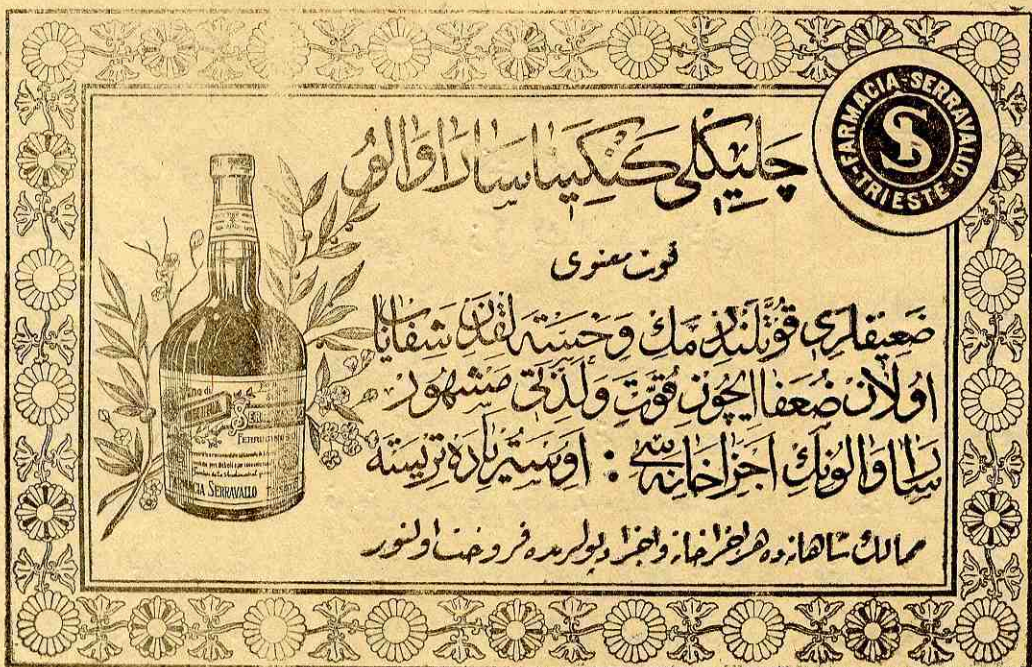 FARMACIA SERRAVALLO
TRIESTE
S
چلیكلی كنكینا سارراوالو
قوت معنوی
ضعیفلری قوّتلندرمك وخسته لقدن شفایاب
اولان ضعفا ایچون قوّت ولذتی مشهور
سرراوالونك اجزاخانه سی : اوستریاده تریسته
ممالك شاهانه ده هر اجزاخانه واجزا دپولرنده فروخت اولنور
SERRAVALLO
FERRUGINOSO
FARMACIA SERRAVALLO